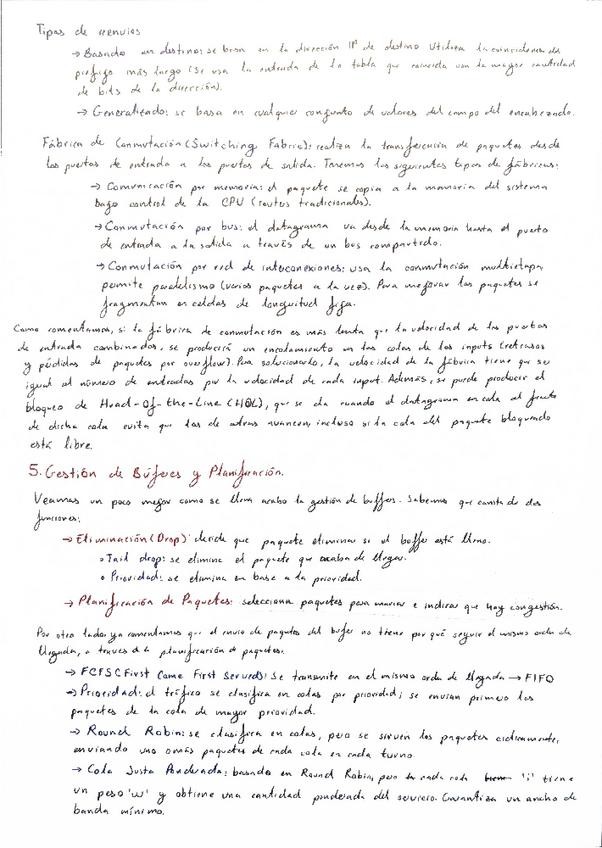 Tipos de reenvios
→ Basado en destino: se basa en la dirección IP de destino. Utiliza la coincidencia del
prefijo más largo (Se usa la entrada de la tabla que coincida con la mayor cantidad
de bits de la dirección).
→ Generalizado: se basa en cualquier conjunto de valores del campo del encabezado.
Fábrica de Conmutación (Switching Fabric): realiza la transferencia de paquetes desde
los puertos de entrada a los puertos de salida. Tenemos los siguientes tipos de fábricas:
→ Comunicación por memoria: el paquete se copia a la memoria del sistema
bajo control de la CPU (routers tradicionales).
→ Conmutación por bus: el datagrama va desde la memoria hasta el puerto
de entrada a la salida a través de un bus compartido.
→ Conmutación por red de interconexiones: usa la conmutación multietapa,
permite paralelismo (varios paquetes a la vez). Para mejorar los paquetes se
fragmentan en celdas de longitud fija.
Como comentamos, si la fábrica de conmutación es más lenta que la velocidad de los puertos
de entrada combinados, se producirá un encolamiento en las colas de los inputs (retrasos
y pérdidas de paquetes por overflow). Para solucionarlo, la velocidad de la fábrica tiene que ser
igual al número de entradas por la velocidad de cada input. Además, se puede producir el
bloqueo de Head-Of-the-Line (HOL), que se da cuando el datagrama en cola al frente
de dicha cola evita que los de atras avancen, incluso si la cola del paquete bloqueado
está libre.
5. Gestión de Búferes y Planificación.
Veamos un poco mejor como se lleva acabo la gestión de buffers. Sabemos que consta de dos
funciones:
→ Eliminación (Drop): decide que paquete eliminar si el buffer está lleno.
• Tail drop: se elimina el paquete que acaba de llegar.
• Prioridad: se elimina en base a la prioridad.
→ Planificación de Paquetes: selecciona paquetes para marcar e indicar que hay congestión.
Por otro lado, ya comentamos que el envio de paquetes del bufer no tiene por qué seguir el mismo orden de
llegada, a través de la planificación de paquetes:
→ FCFS (First Come First Served): Se transmite en el mismo orden de llegada → FIFO
→ Prioridad: el tráfico se clasifica en colas por prioridad; se envian primero los
paquetes de la cola de mayor prioridad.
→ Round Robin: se clasifica en colas, pero se sirven los paquetes cíclicamente,
enviando uno o más paquetes de cada cola en cada turno
→ Cola Justa Ponderada: basado en Round Robin, pero cada cola 'i' tiene
un peso 'w' y obtiene una cantidad ponderada del servicio. Garantiza un ancho de
banda mínimo.